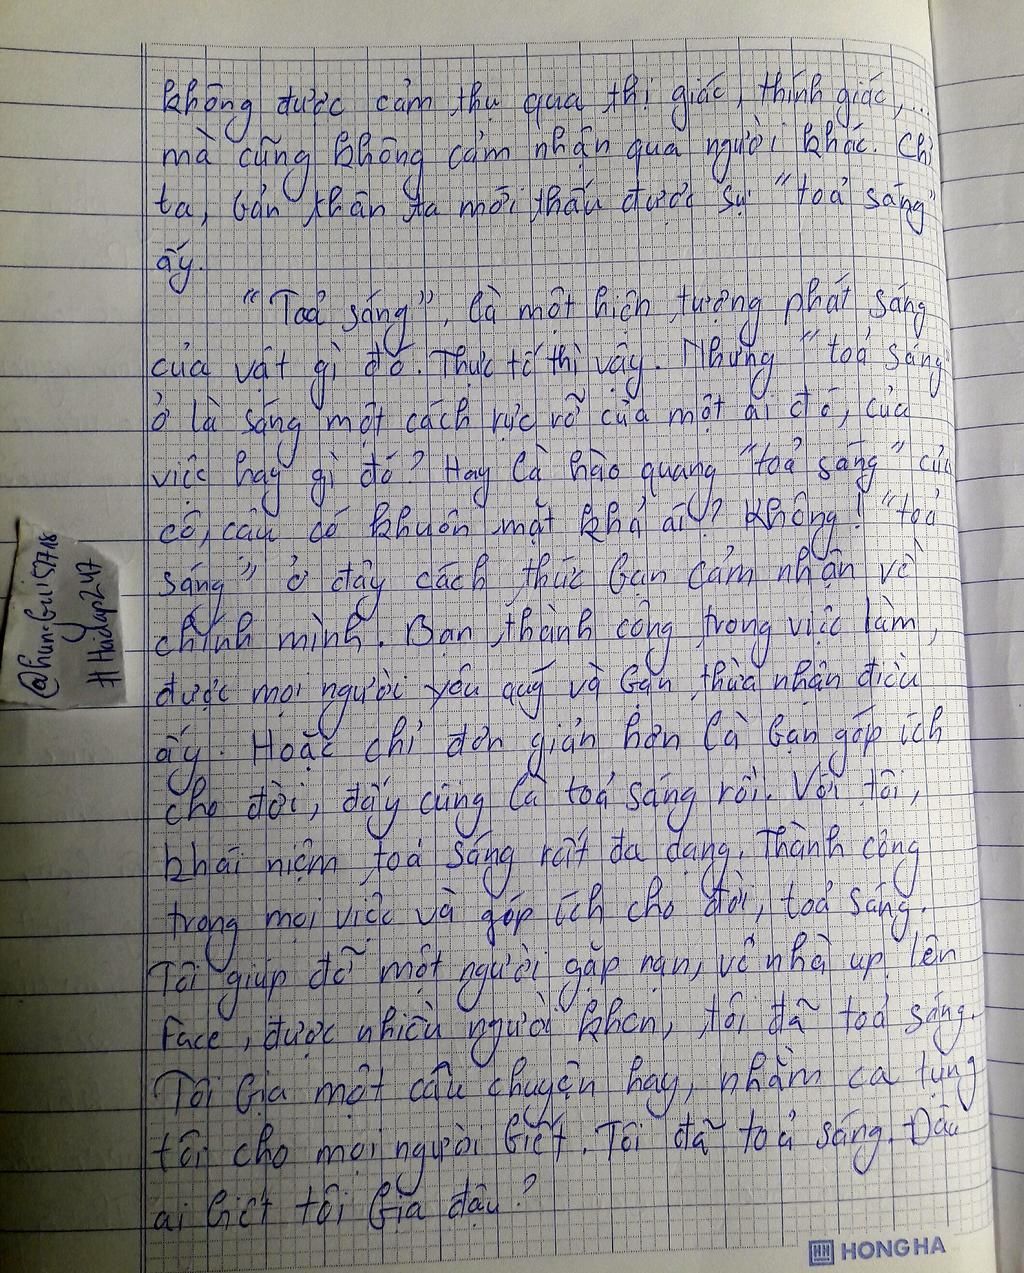 không được cảm thụ qua thị giác, thính giác,...
mà cũng không cảm nhận qua người khác. Chỉ
ta, bản thân ta mới thấu được sự "toả sáng"
ấy.
"Toả sáng", là một hiện tượng phát sáng
của vật gì đó. Thực tế thì vậy. Nhưng "toả sáng"
ở là sáng một cách rực rỡ của một ai đó, của
việc hay gì đó? Hay là hào quang "toả sáng" của
cô, cậu có khuôn mặt khả ái? Không! "toả
sáng" ở đây cách thức bạn cảm nhận về
chính mình. Bạn thành công trong việc làm,
được mọi người yêu quý và bạn thừa nhận điều
ấy. Hoặc chỉ đơn giản hơn là bạn góp ích
cho đời, đấy cũng là toả sáng rồi. Với tôi,
khái niệm toả sáng rất đa dạng. Thành công
trong mọi việc và góp ích cho đời, toả sáng.
Tôi giúp đỡ một người gặp nạn, về nhà up lên
Face, được nhiều người khen, tôi đã toả sáng.
Tôi bịa một câu chuyện hay, nhằm ca tụng
tôi cho mọi người biết. Tôi đã toả sáng. Đâu
ai biết tôi bịa đâu?
#Haidap247
HH HONG HA